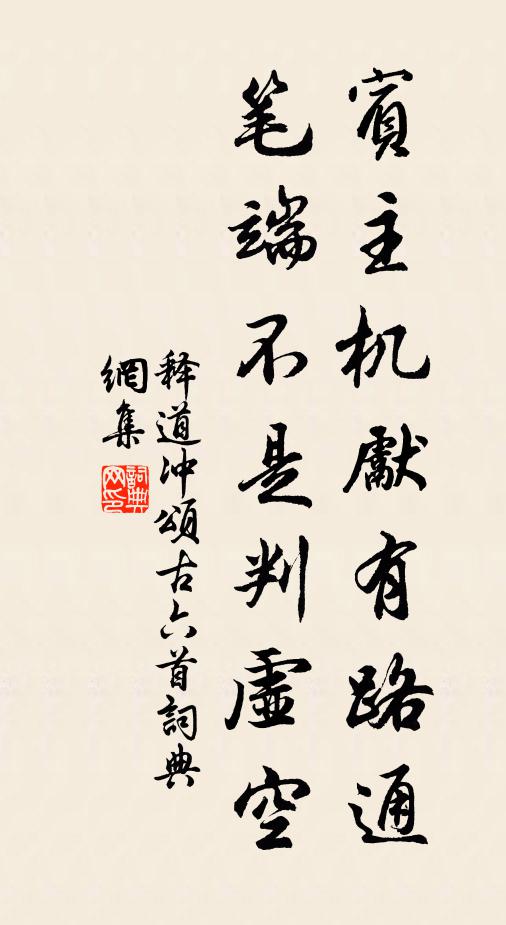 賓主机獻有路通
笔端不是判虛空
释道冲頌古六首詞典
網集
詞典
网印